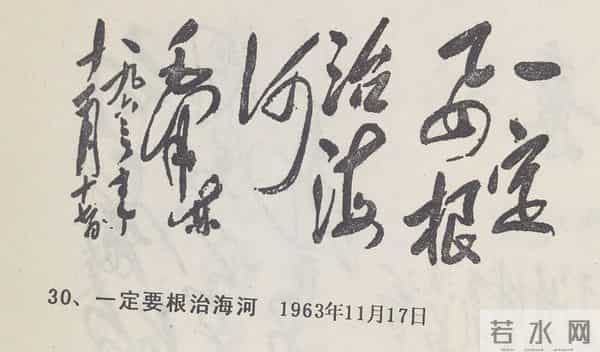 一定
要根
治海
河
毛泽东
一九六三年
十一月十七日
30、一定要根治海河 1963年11月17日
若水网